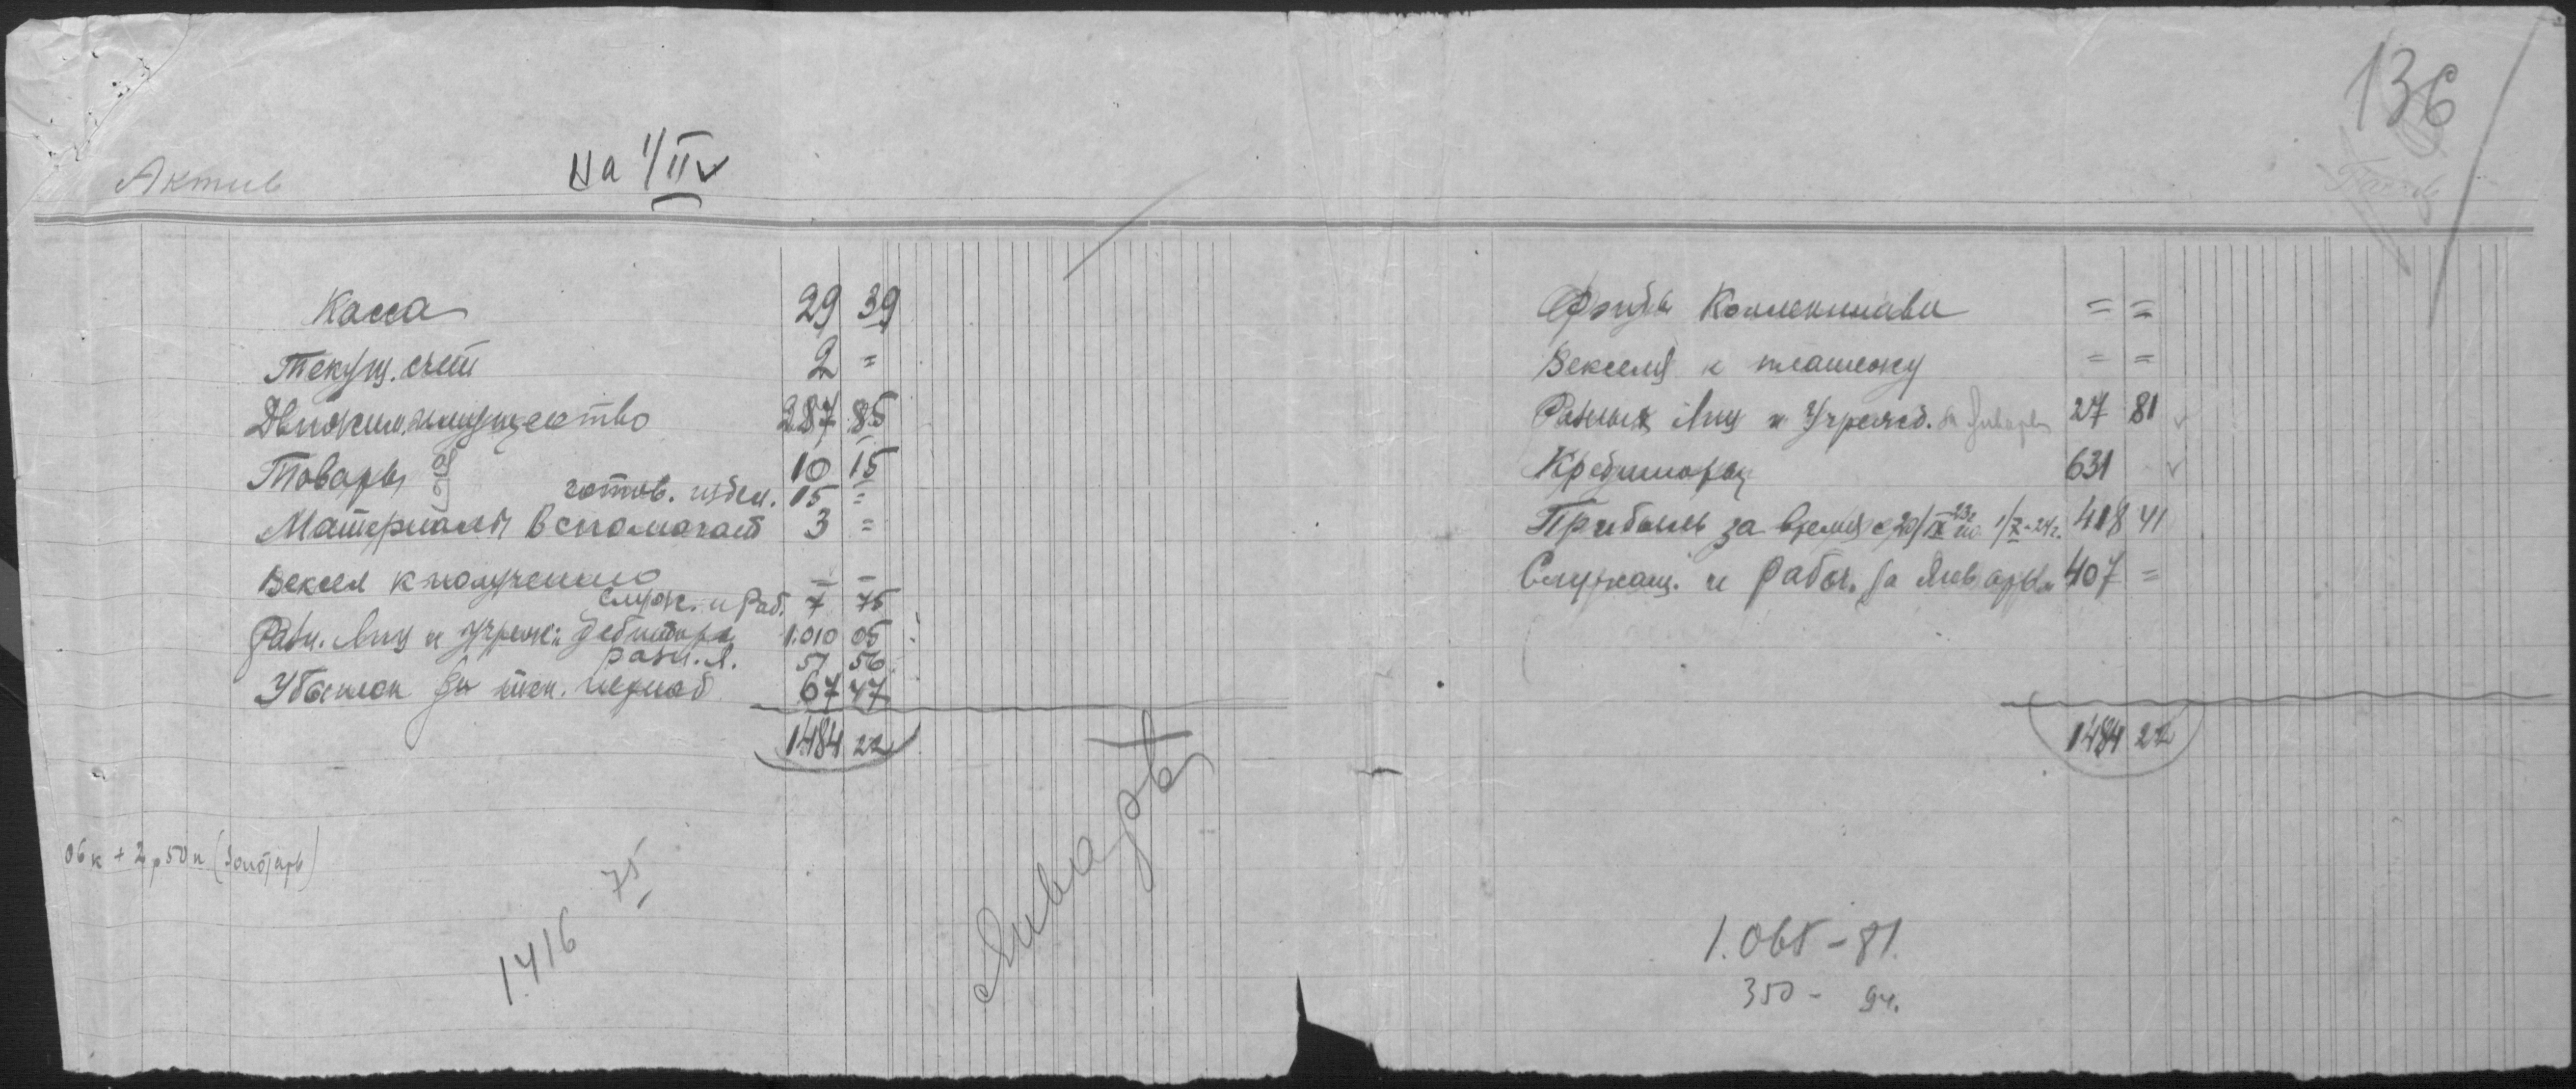 136
Актив
На 1/II
Пассив
Касса 29 39
Текущ. счет 2 =
Движим. имущество 287 85
Товары 10 15
готов. издел. 15 =
Материалы Вспомогат 3 =
Вексел к получению = =
Служ. и Раб. 7 75
Разн. Лиц и Учреж: Дебитора 1.010 05
разн. л. 51 56
Убыток за тек. период 67 47
1484 22
Фонды Коллектива = =
Векселя к платежу = =
Разных Лиц и Учрежд. за Январь 27 81
Кредиторы 631
Прибыль за время с 20/IX 23г. по 1/X-24г. 418 41
Служащ. и Рабоч. за Январь 407 =
1484 22
06 к + 2 р 50 к
1416 75
Январь
1.065 - 81.
350 - 94.